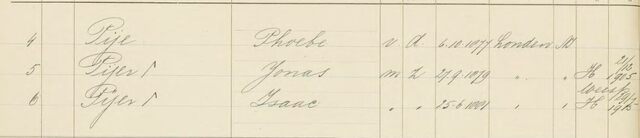 4 Pije Phoebe v d 6.10.1877 Londen NI
5 Pijer Jonas m Z 27.9.1879 " " H 21/12 1905
6 Pijer Isaac " " 25.6.1881 " " H Weesp 29/12 1915